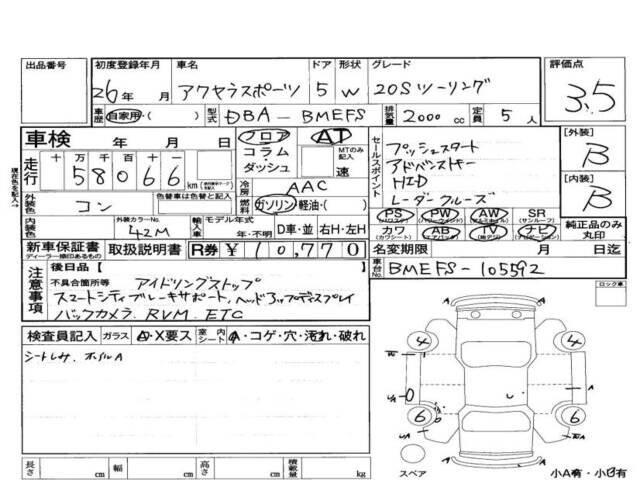 出品番号 初度登録年月 車名 ドア 形状 グレード 評価点
26年 月 アクセラスポーツ 5 W 20Sツーリング 3.5
車歴 自家用・( ) 型式 DBA-BMEFS 排気量 2000 cc 定員 5 人
車検 年 月 日 フロア AT セールスポイント プッシュスタート [外装] B
走行 十 万 千 百 十 一 コラム・ダッシュ MTのみ記入 速 アドバンストキー
58066 km 冷房 AAC HID [内装] B
外装色 コン 色替車は色替と記入 燃料 ガソリン・軽油・( ) レーダークルーズ
PS PW AW SR 純正品のみ丸印
内装色 外装カラーNo. 42M 輸入車 モデル年式 年・不明 D車・並 右H・左H カワ AB TV ナビ
新車保証書 取扱説明書 R券 ¥10,770 名変期限 月 日迄
ディーラー捺印あるもの
注意事項 後日品[ ] 車台No. BMEFS-105592
不具合箇所等 アイドリングストップ
スマートシティブレーキサポート、ヘッドアップディスプレイ
バックカメラ RVM ETC
ロック車
検査員記入 ガラス A・X要ス 室内シート A・コゲ・穴・汚れ・破れ
4 4
A
6 6
長さ cm 幅 cm 高さ cm 積載量 kg
スペア 小A有・小B有
現在色を記入→